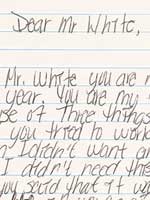 Dear Mr White,
Mr. White you are
year. You are my
of three things
you tried to work
I didn't want
I didn't need
you said that it